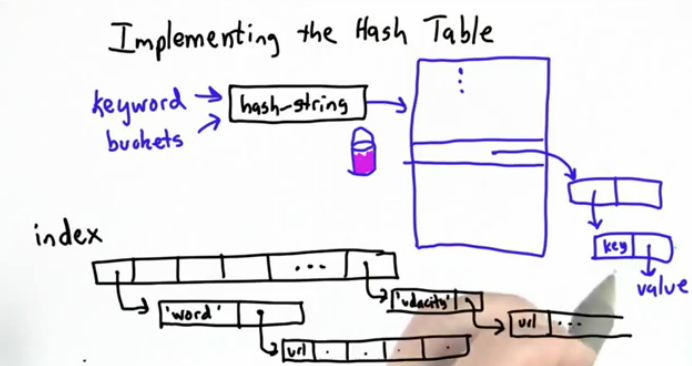 Implementing the Hash Table
keyword
buckets
hash-string
key
value
index
'word'
'udacity'
url
url